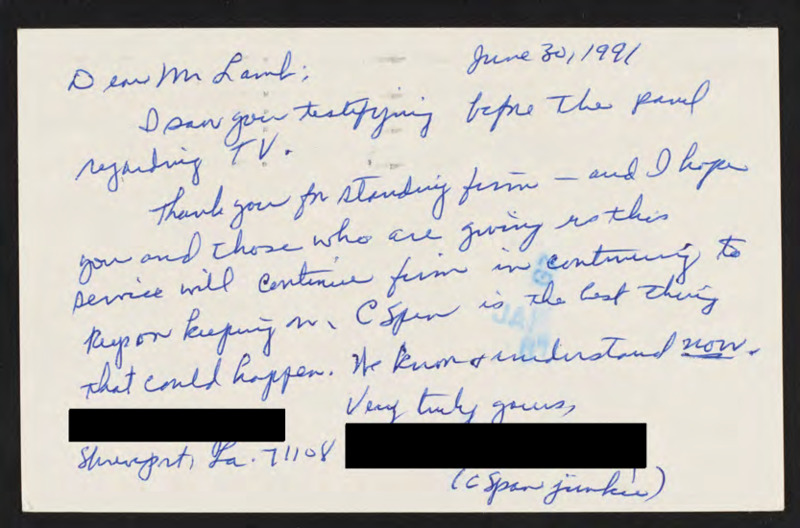 June 30, 1991
Dear Mr Lamb;
I saw you testifying before the panel
regarding TV.
Thank you for standing firm – and I hope
you and those who are giving us this
service will continue firm in continuing to
keep on keeping on. C Span is the best thing
that could happen. We know & understand now.
Very truly yours,
Shreveport, La. 71108
(C Span junkie)